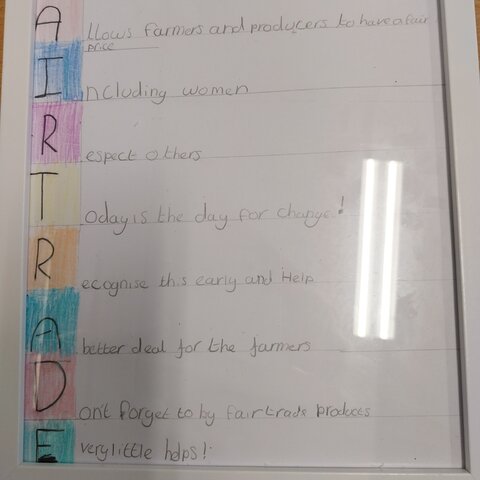 Allows farmers and producers to have a fair
price
Including women
Respect others
Today is the day for change!
Recognise this early and Help
A better deal for the farmers
Don't forget to by fairtrade products
Every little helps!